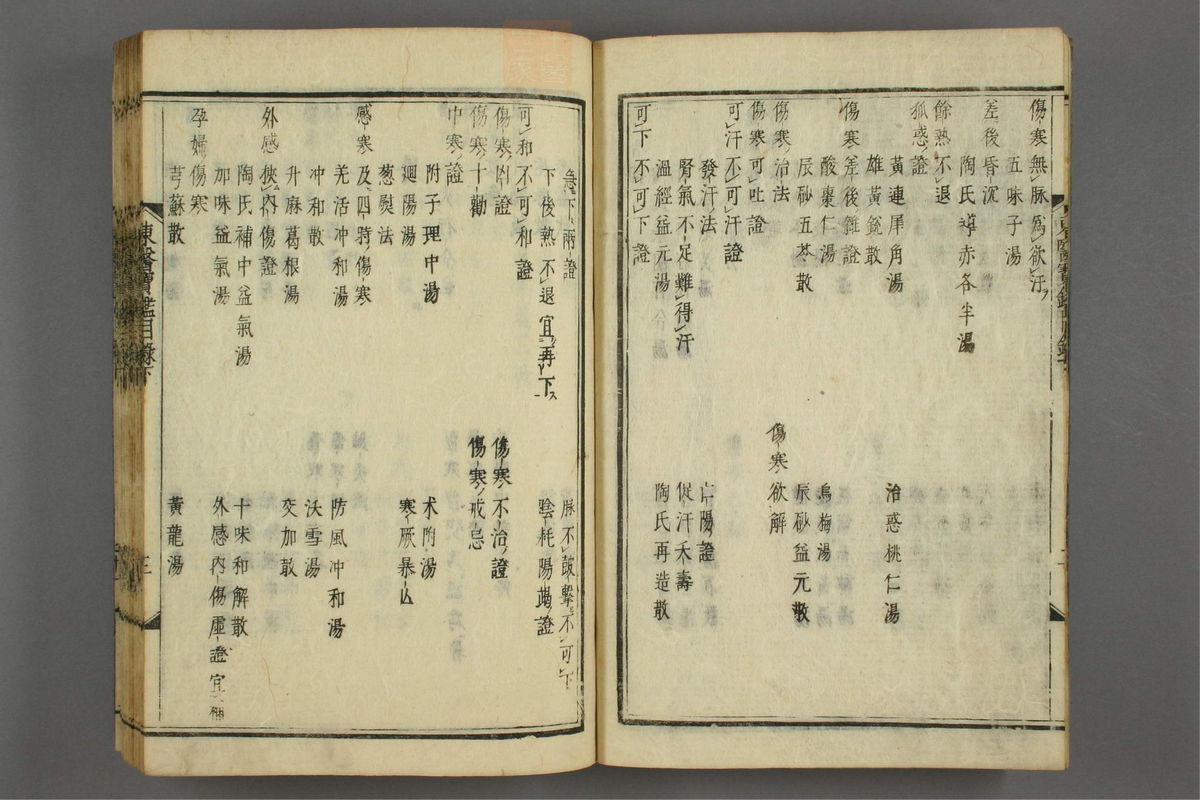 傷寒無脉爲欲汗
五味子湯
差後昏沉
陶氏導赤各半湯
餘熱不退
狐惑證
黃連犀角湯
治惑桃仁湯
雄黃銳散
傷寒差後雜證
酸棗仁湯
烏梅湯
辰砂五苓散
辰砂益元散
傷寒治法
傷寒欲解
傷寒可吐證
可汗不可汗證
發汗法
亡陽證
腎氣不足難得汗
促汗夭壽
溫經益元湯
陶氏再造散
可下不可下證
急下兩證
脉不鼓擊不可下
下後熱不退宜再下
陰耗陽竭證
可和不可和證
傷寒凶證
傷寒不治證
傷寒十勸
傷寒戒忌
中寒證
附子理中湯
朮附湯
廻陽湯
寒厥暴亡
葱熨法
感寒及四時傷寒
羌活冲和湯
防風冲和湯
冲和散
沃雪湯
升麻葛根湯
交加散
外感挾內傷證
陶氏補中益氣湯
十味和解散
加味益氣湯
外感內傷虛證宜補
孕婦傷寒
芎蘇散
黃龍湯
東醫寶鑑目錄下
三